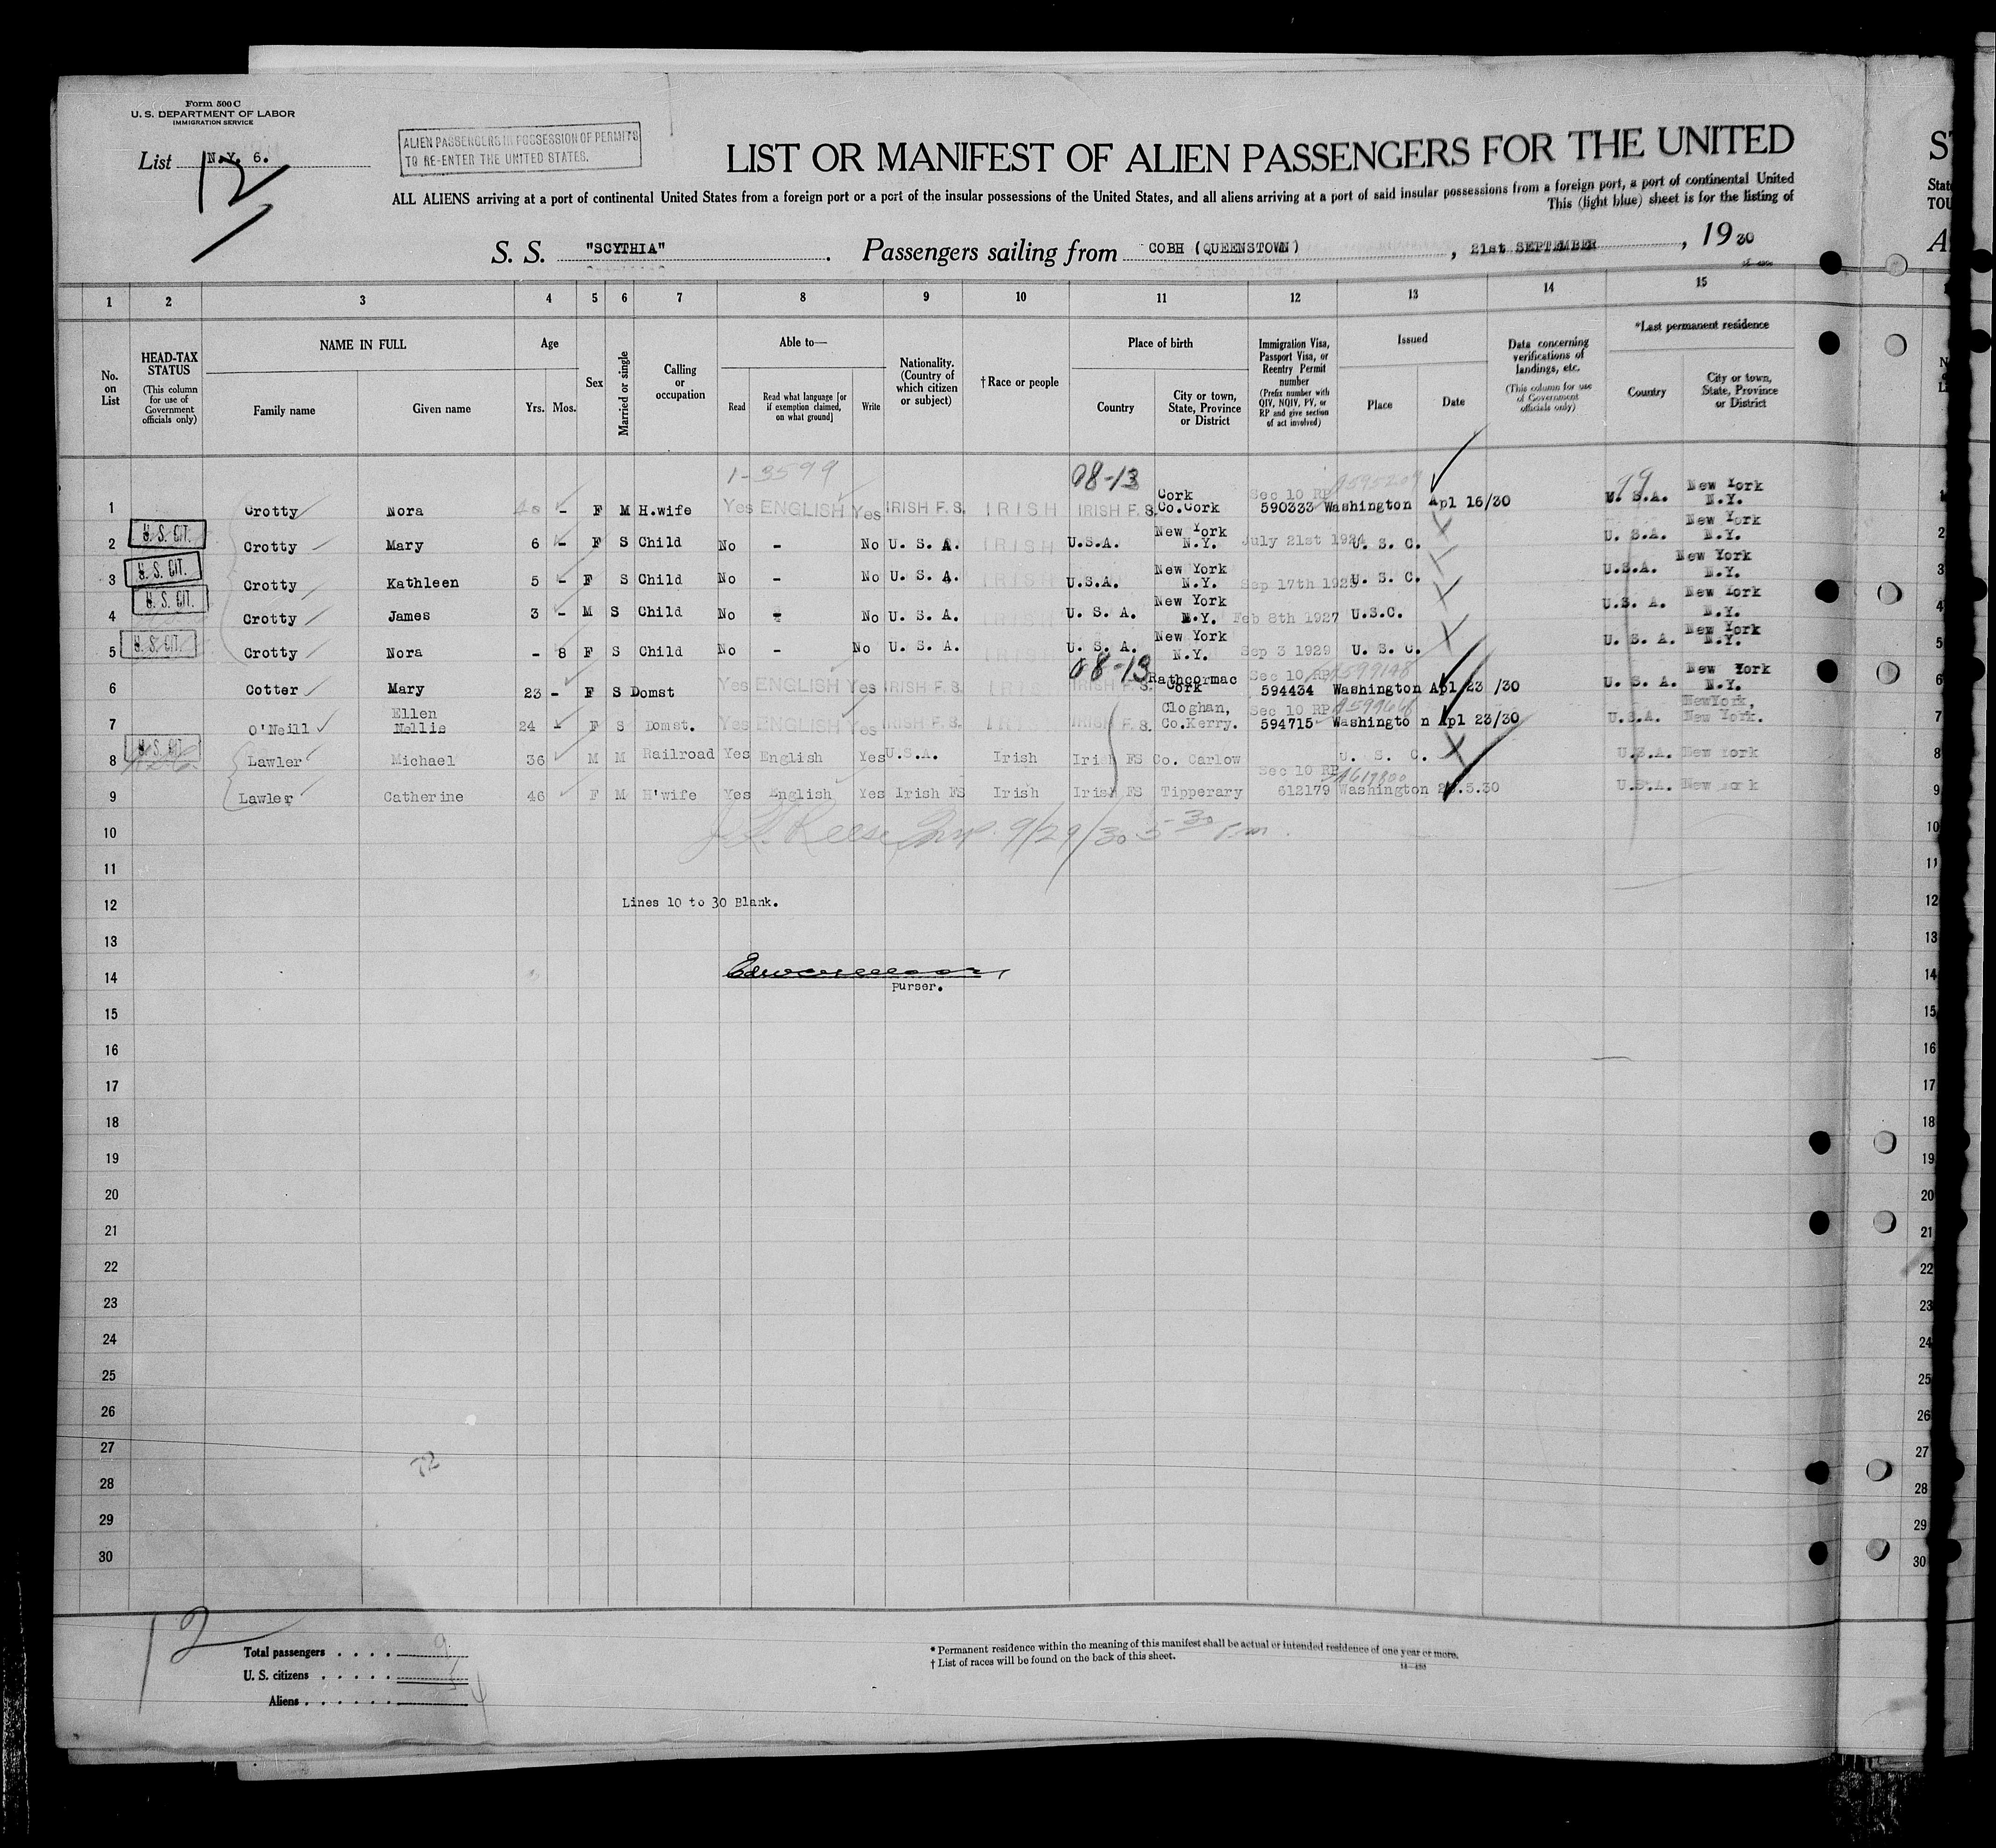 Form 500 C
U. S. DEPARTMENT OF LABOR
IMMIGRATION SERVICE
List N.Y. 6.
12
ALIEN PASSENGERS IN POSSESSION OF PERMITS
TO RE-ENTER THE UNITED STATES.
LIST OR MANIFEST OF ALIEN PASSENGERS FOR THE UNITED
ALL ALIENS arriving at a port of continental United States from a foreign port or a port of the insular possessions of the United States, and all aliens arriving at a port of said insular possessions from a foreign port, a port of continental United
This (light blue) sheet is for the listing of
S. S. "SCYTHIA". Passengers sailing from COBH (QUEENSTOWN), 21st SEPTEMBER, 19 30
1 2 3 4 5 6 7 8 9 10 11 12 13 14 15
No. on List
HEAD-TAX STATUS (This column for use of Government officials only)
NAME IN FULL
Family name Given name
Age
Yrs. Mos.
Sex
Married or single
Calling or occupation
Able to—
Read
Read what language [or if exemption claimed, on what ground]
Write
Nationality. (Country of which citizen or subject)
†Race or people
Place of birth
Country
City or town, State, Province or District
Immigration Visa, Passport Visa, or Reentry Permit number (Prefix number with QIV, NQIV, PV, or RP and give section of act involved)
Issued
Place Date
Data concerning verifications of landings, etc. (This column for use of Government officials only)
*Last permanent residence
Country
City or town, State, Province or District
1-3599 08-13 A595209 99
1 Crotty Nora 40 - F M H.wife Yes ENGLISH Yes IRISH F.S. IRISH IRISH F.S. Cork Co.Cork Sec 10 RP 590333 Washington Apl 16/30 U. S.A. New York N.Y.
2 U. S. CIT. Crotty Mary 6 - F S Child No - No U. S. A. IRISH U.S.A. New York N.Y. July 21st 1924 U. S. C. U. S.A. New York N.Y.
3 U. S. CIT. Crotty Kathleen 5 - F S Child No - No U. S. A. IRISH U.S.A. New York N.Y. Sep 17th 1925 U. S. C. U.S.A. New York N.Y.
4 U. S. CIT. Crotty James 3 - M S Child No - No U. S. A. U. S. A. New York N.Y. Feb 8th 1927 U.S.C. U.S. A. New York N.Y.
5 U. S. CIT. Crotty Nora - 8 F S Child No - No U. S. A. IRISH U. S. A. New York N.Y. Sep 3 1929 U. S. C. U. S. A. New York N.Y.
08-13 A599148
6 Cotter Mary 23 - F S Domst Yes ENGLISH Yes IRISH F.S. IRISH F.S. Rathcormac Cork Sec 10 RP 594434 Washington Apl 23 /30 U. S. A. New York N.Y.
7 O'Neill Ellen Nellie 24 - F S Domst. Yes ENGLISH Yes IRISH F.S. IRISH F.S. Cloghan, Co.Kerry. Sec 10 RP 594715 Washingto n Apl 23/30 U.S.A. NewYork, New York.
8 U. S. CIT. Lawler Michael 36 M M Railroad Yes English Yes U.S.A. Irish Irish FS Co. Carlow U. S. C. U.S.A. New York
9 Lawler Catherine 46 F M H'wife Yes English Yes Irish FS Irish Irish FS Tipperary Sec 10 RP A617800 612179 Washington U.S.A. New York
10 J. L. Reese Insp. 9/29/30 5 30 P.m.
11
12 Lines 10 to 30 Blank.
13
14
Purser.
15
16
17
18
19
20
21
22
23
24
25
26
27
28
29
30
12
Total passengers 9
U. S. citizens 5
Aliens 4
* Permanent residence within the meaning of this manifest shall be actual or intended residence of one year or more.
† List of races will be found on the back of this sheet.